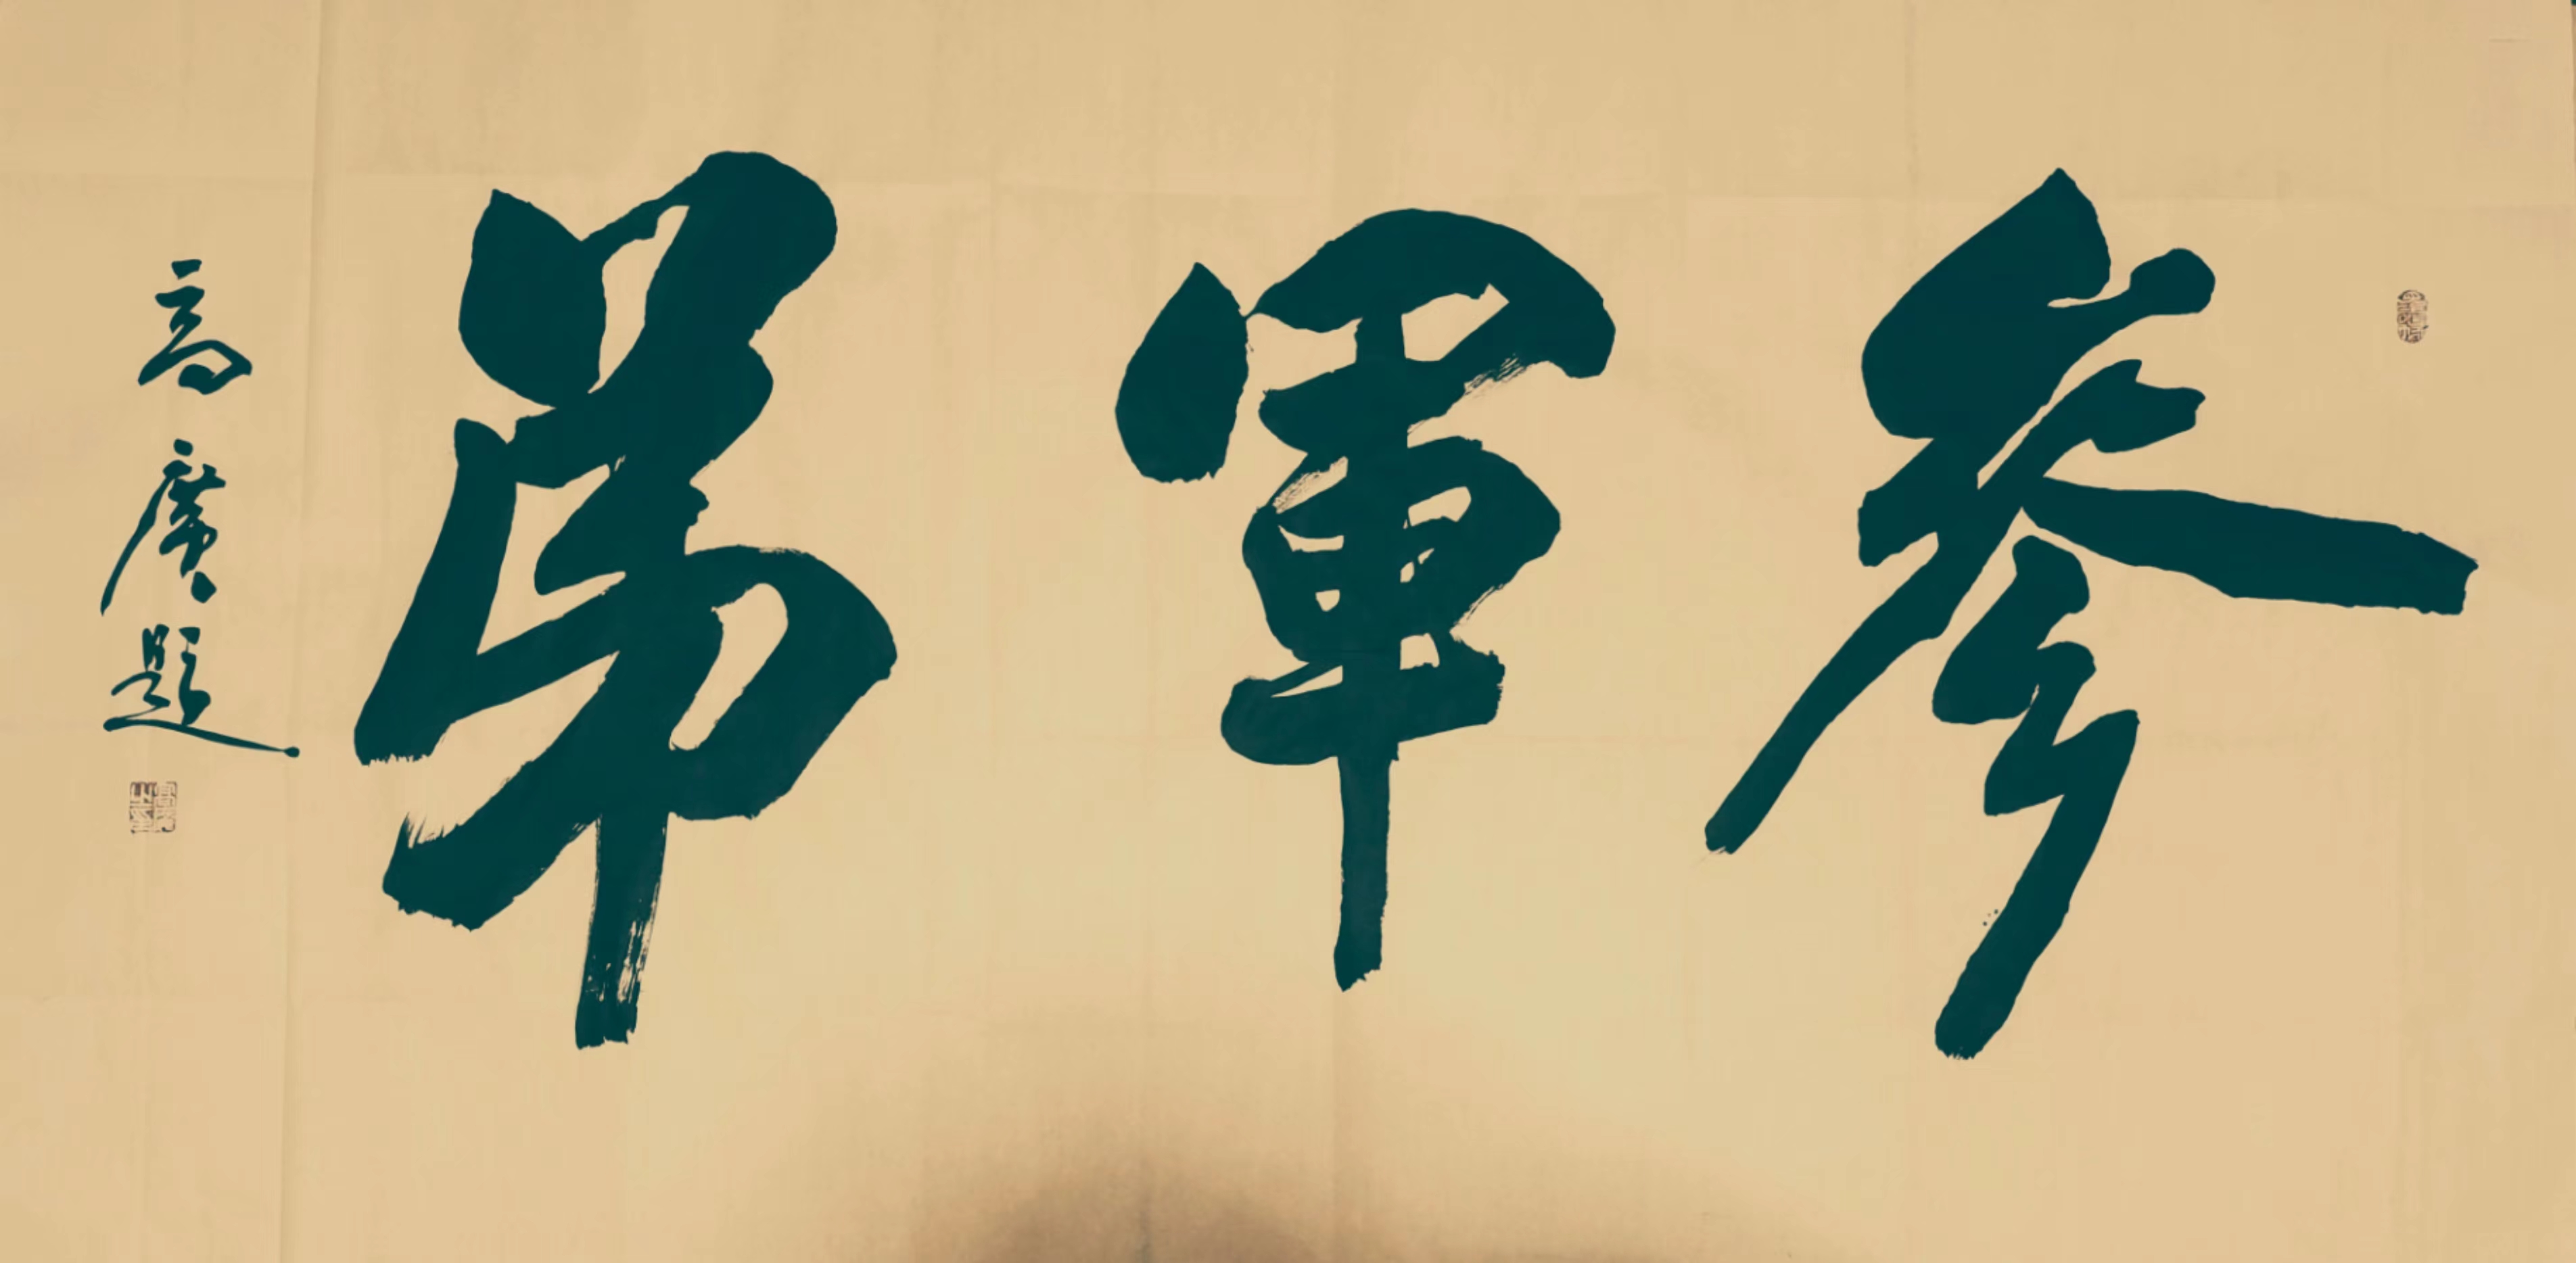 參軍第
高廣題